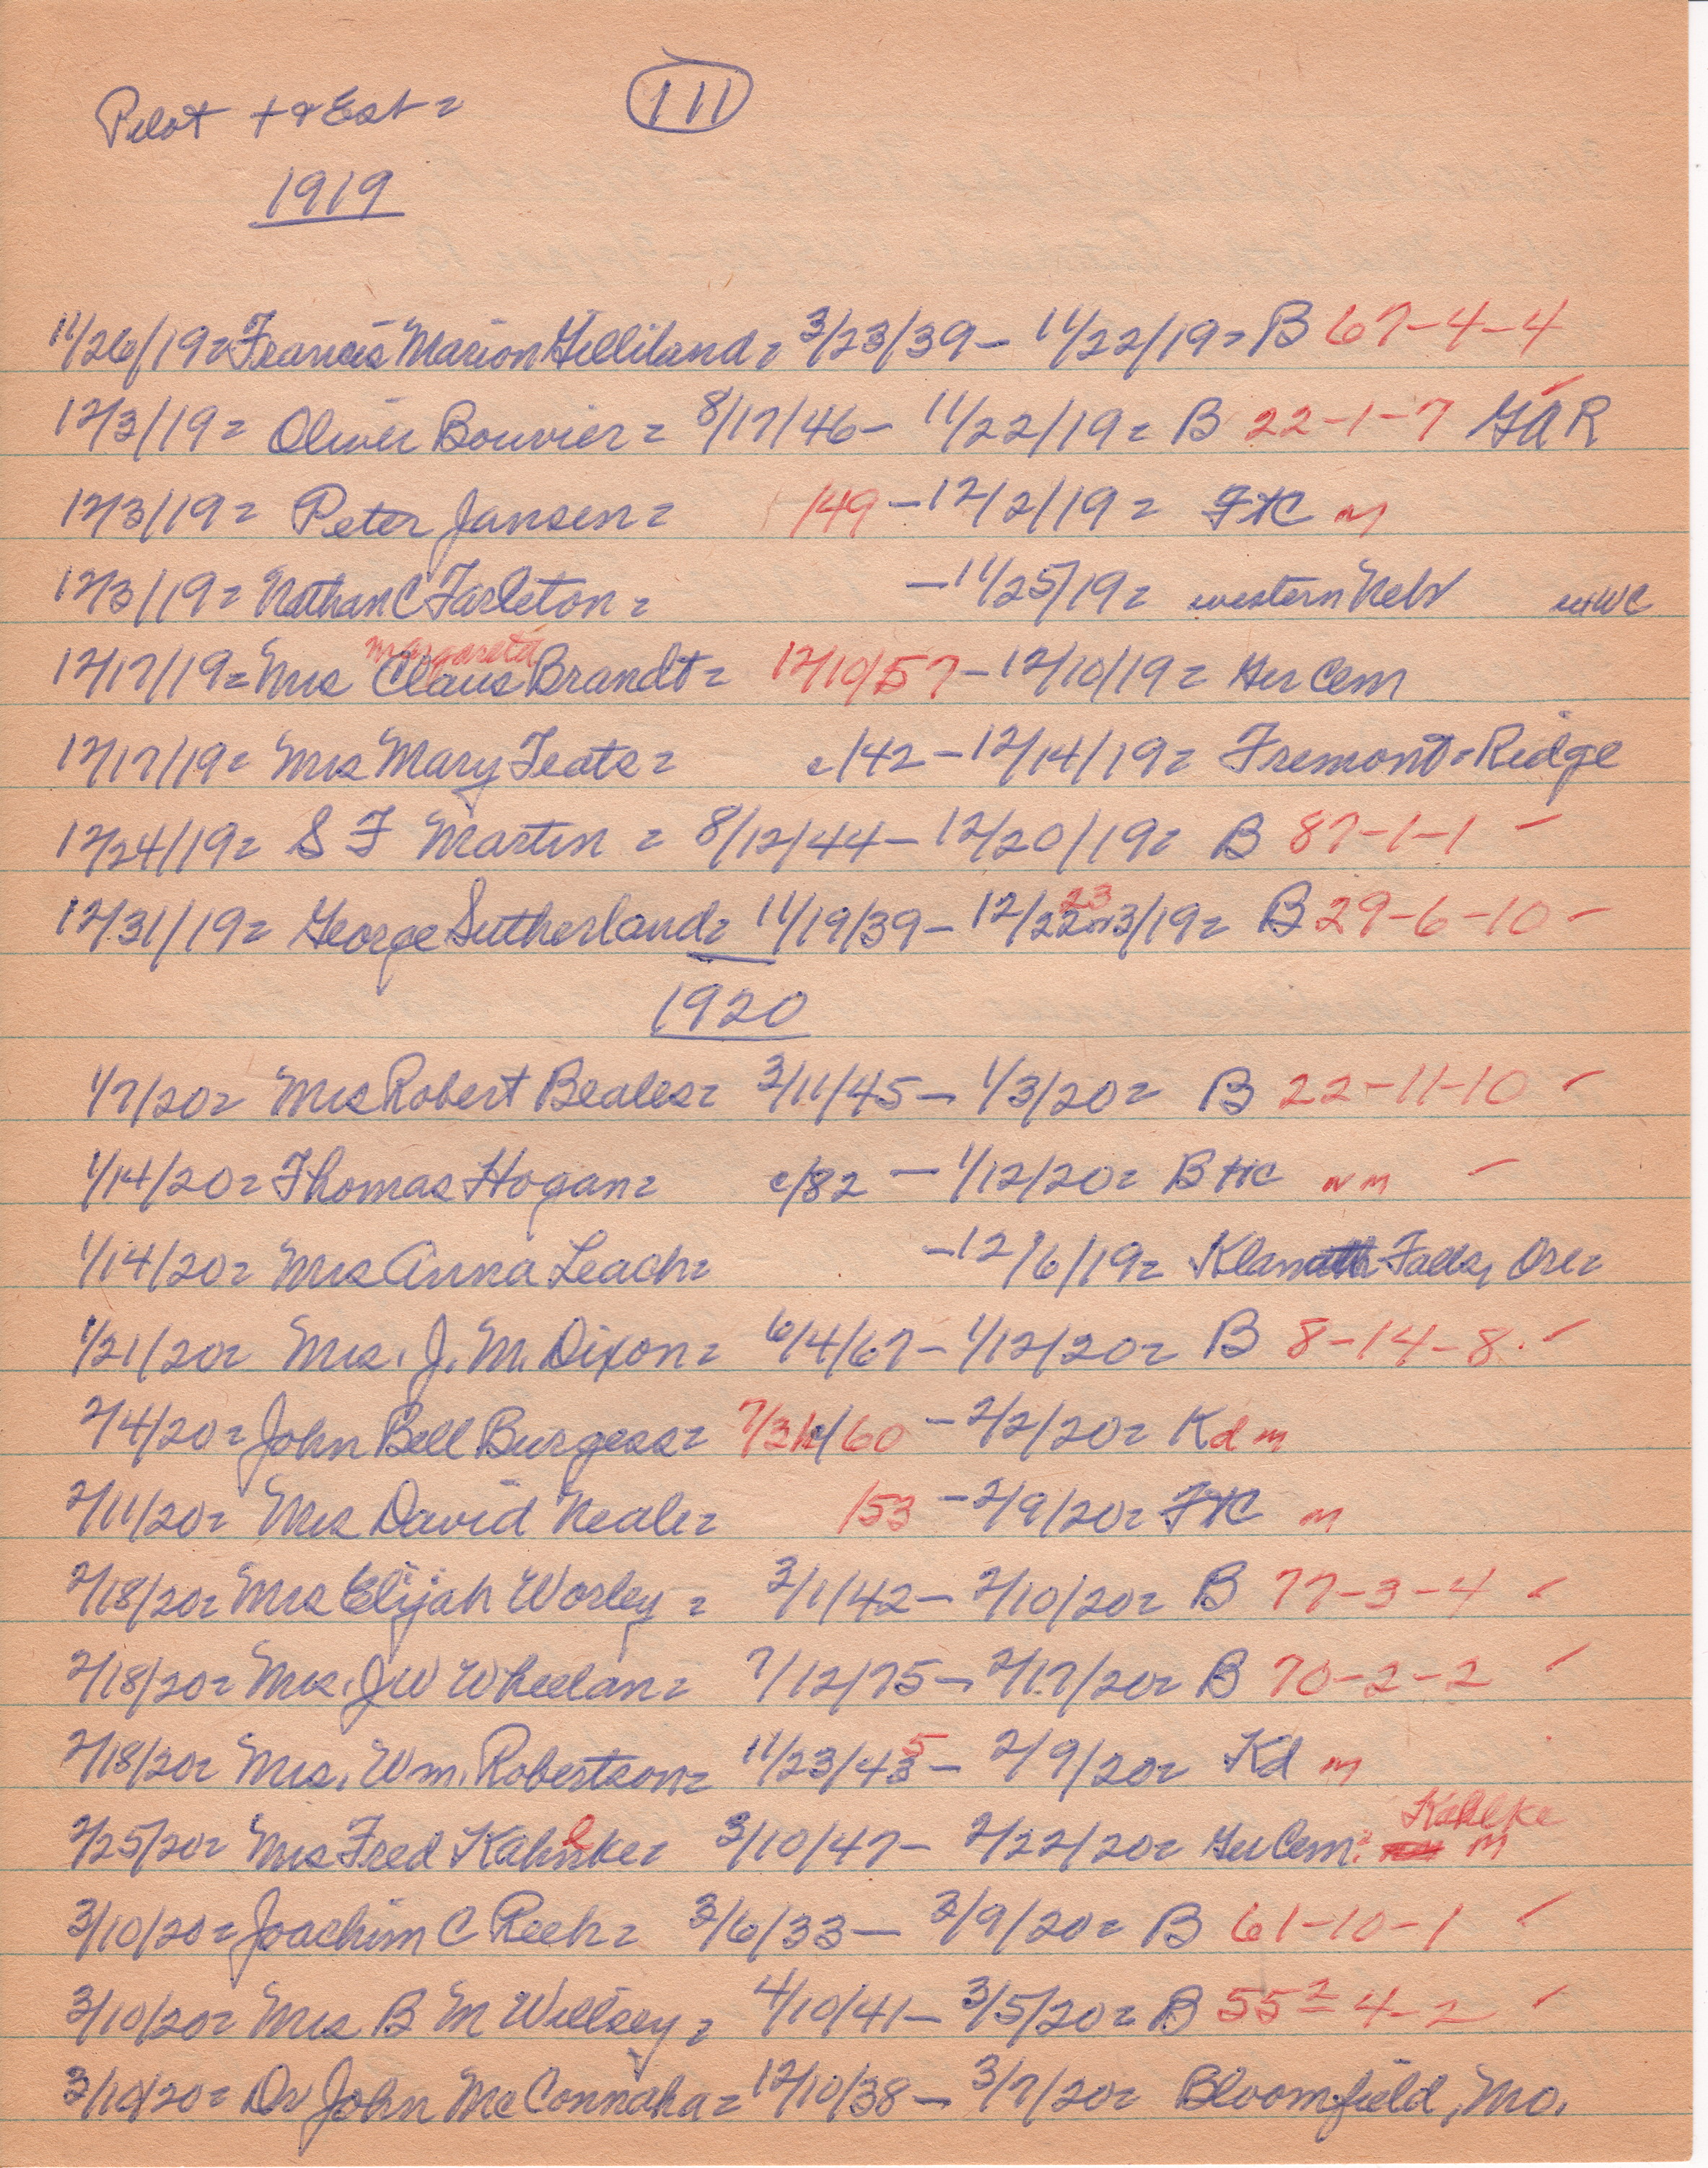 Pilot + & Est =
111
1919
11/26/19= Francis Marion Gilliland = 3/23/39 – 11/22/19= B 67-4-4
12/3/19= Oliver Bouvier = 8/17/46 – 11/22/19= B 22-1-7 GAR
12/3/19= Peter Jansen = /49 – 12/2/19= FHC m
12/3/19= Nathan C Tarleton = – 11/25/19= western Nebr
Margareta
12/17/19= Mrs Claus Brandt = 12/10/57 – 12/10/19= Ger Cem
12/17/19= Mrs Mary Teats = c/42 – 12/14/19= Fremont = Ridge
12/24/19= S F Martin = 8/12/44 – 12/20/19= B 87-1-1
23
12/31/19= George Sutherland = 11/19/39 – 12/22 or 3/19= B 29-6-10
1920
1/7/20= Mrs Robert Beales = 3/11/45 – 1/3/20= B 22-11-10
1/14/20= Thomas Hogan = c/82 – 1/12/20= BHC nm
1/14/20= Mrs Anna Leach = – 12/6/19= Klamath Falls, Ore =
1/21/20= Mrs. J. M. Dixon = 6/4/67 – 1/12/20= B 8-14-8.
2/4/20= John Bell Burgess = 7/31/60 – 2/2/20= Kd m
2/11/20= Mrs David Neale = /53 – 2/9/20= FHC m
2/18/20= Mrs Elijah Worley = 3/1/42 – 2/10/20= B 77-3-4
2/18/20= Mrs. J W Wheelan = 7/12/75 – 2/17/20= B 70-2-2
5
2/18/20= Mrs. Wm. Robertson = 11/23/43 – 2/9/20= Kd m
Kahlke
2/25/20= Mrs Fred Kahnke = 3/10/47 – 2/22/20= Ger Cem = m
3/10/20= Joachim C Reeh = 3/6/33 – 3/9/20= B 61-10-1
3/10/20= Mrs B M Willsey = 4/10/41 – 3/5/20= B 55²-4-2
3/10/20= Dr John McConnaha = 12/10/38 – 3/7/20= Bloomfield, Mo.